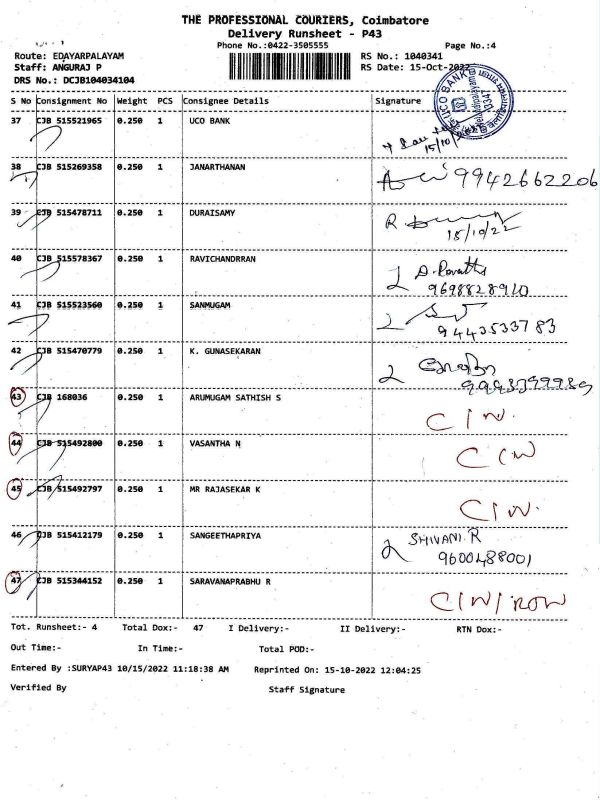 THE PROFESSIONAL COURIERS, Coimbatore
Delivery Runsheet - P43
Phone No.:0422-3505555 Page No.:4
Route: EDAYARPALAYAM RS No.: 1040341
Staff: ANGURAJ P RS Date: 15-Oct-2022
DRS No.: DCJB104034104
UCO BANK
S No Consignment No Weight PCS Consignee Details Signature
37 CJB 515521965 0.250 1 UCO BANK
15/10/
38 CJB 515269358 0.250 1 JANARTHANAN 9942662206
39 CJB 515478711 0.250 1 DURAISAMY R
15/10/22
40 CJB 515578367 0.250 1 RAVICHANDRRAN
9698828910
41 CJB 515523560 0.250 1 SANMUGAM
9443533783
42 CJB 515470779 0.250 1 K. GUNASEKARAN
43 CJB 168036 0.250 1 ARUMUGAM SATHISH S C/N.
44 CJB 515492800 0.250 1 VASANTHA N
45 CJB 515492797 0.250 1 MR RAJASEKAR K
46 CJB 515412179 0.250 1 SANGEETHAPRIYA SHIVANI.R
9600488001
47 CJB 515344152 0.250 1 SARAVANAPRABHU R
Tot. Runsheet:- 4 Total Dox:- 47 I Delivery:- II Delivery:- RTN Dox:-
Out Time:- In Time:- Total POD:-
Entered By :SURYAP43 10/15/2022 11:18:38 AM Reprinted On: 15-10-2022 12:04:25
Verified By Staff Signature